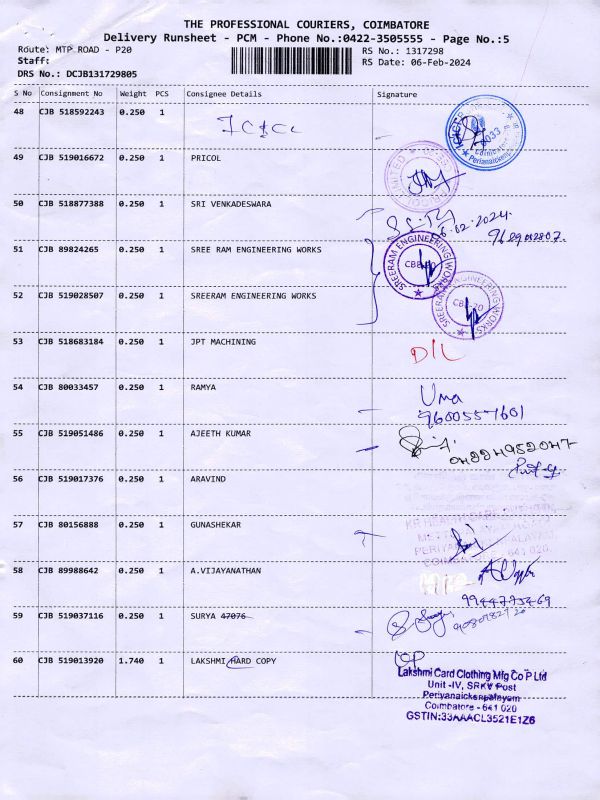 THE PROFESSIONAL COURIERS, COIMBATORE
Delivery Runsheet - PCM - Phone No.:0422-3505555 - Page No.:5
Route: MTP ROAD - P20 RS No.: 1317298
Staff: RS Date: 06-Feb-2024
DRS No.: DCJB131729805
S No Consignment No Weight PCS Consignee Details Signature
48 CJB 518592243 0.250 1
49 CJB 519016672 0.250 1 PRICOL
50 CJB 518877388 0.250 1 SRI VENKADESWARA
51 CJB 89824265 0.250 1 SREE RAM ENGINEERING WORKS
SREERAM ENGINEERING WORKS
52 CJB 519028507 0.250 1 SREERAM ENGINEERING WORKS
SREERAM ENGINEERING WORKS
53 CJB 518683184 0.250 1 JPT MACHINING D/L
54 CJB 80033457 0.250 1 RAMYA Uma
9600557601
55 CJB 519051486 0.250 1 AJEETH KUMAR
56 CJB 519017376 0.250 1 ARAVIND
57 CJB 80156888 0.250 1 GUNASHEKAR
58 CJB 89988642 0.250 1 A.VIJAYANATHAN
9944775469
59 CJB 519037116 0.250 1 SURYA 47076
60 CJB 519013920 1.740 1 LAKSHMI HARD COPY
Lakshmi Card Clothing Mfg Co P Ltd
Unit -IV, SRKV Post
Periyanaickenpalayam
Coimbatore - 641 020
GSTIN:33AAACL3521E1Z6